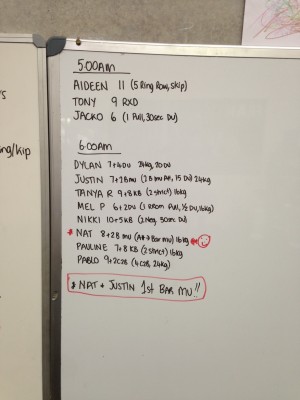 5:00AM
AIDEEN 11 (5 Ring Row, Skip)
TONY 9 RXD
JACKO 6 (1 Pull, 30sec DU)
6:00AM
DYLAN 7+4DU 24kg, 20DU
JUSTIN 7+2BMU (2Bmu Att, 15 DU) 24kg
TANYA R 9+8KB (2 strict) 16kg
MEL P 6+2DU (1 Room Pull, 1/2 DU, 16kg)
NIKKI 10+5KB (2 Neg, 30sec DU)
* NAT 8+2BMU (Att → Bar MU) 16kg
PAULINE 7+8KB (2 strict) 16kg
PABLO 9+2C2B (4C2B, 24kg)
* NAT + JUSTIN 1st BAR MU!!
's
ng/kip